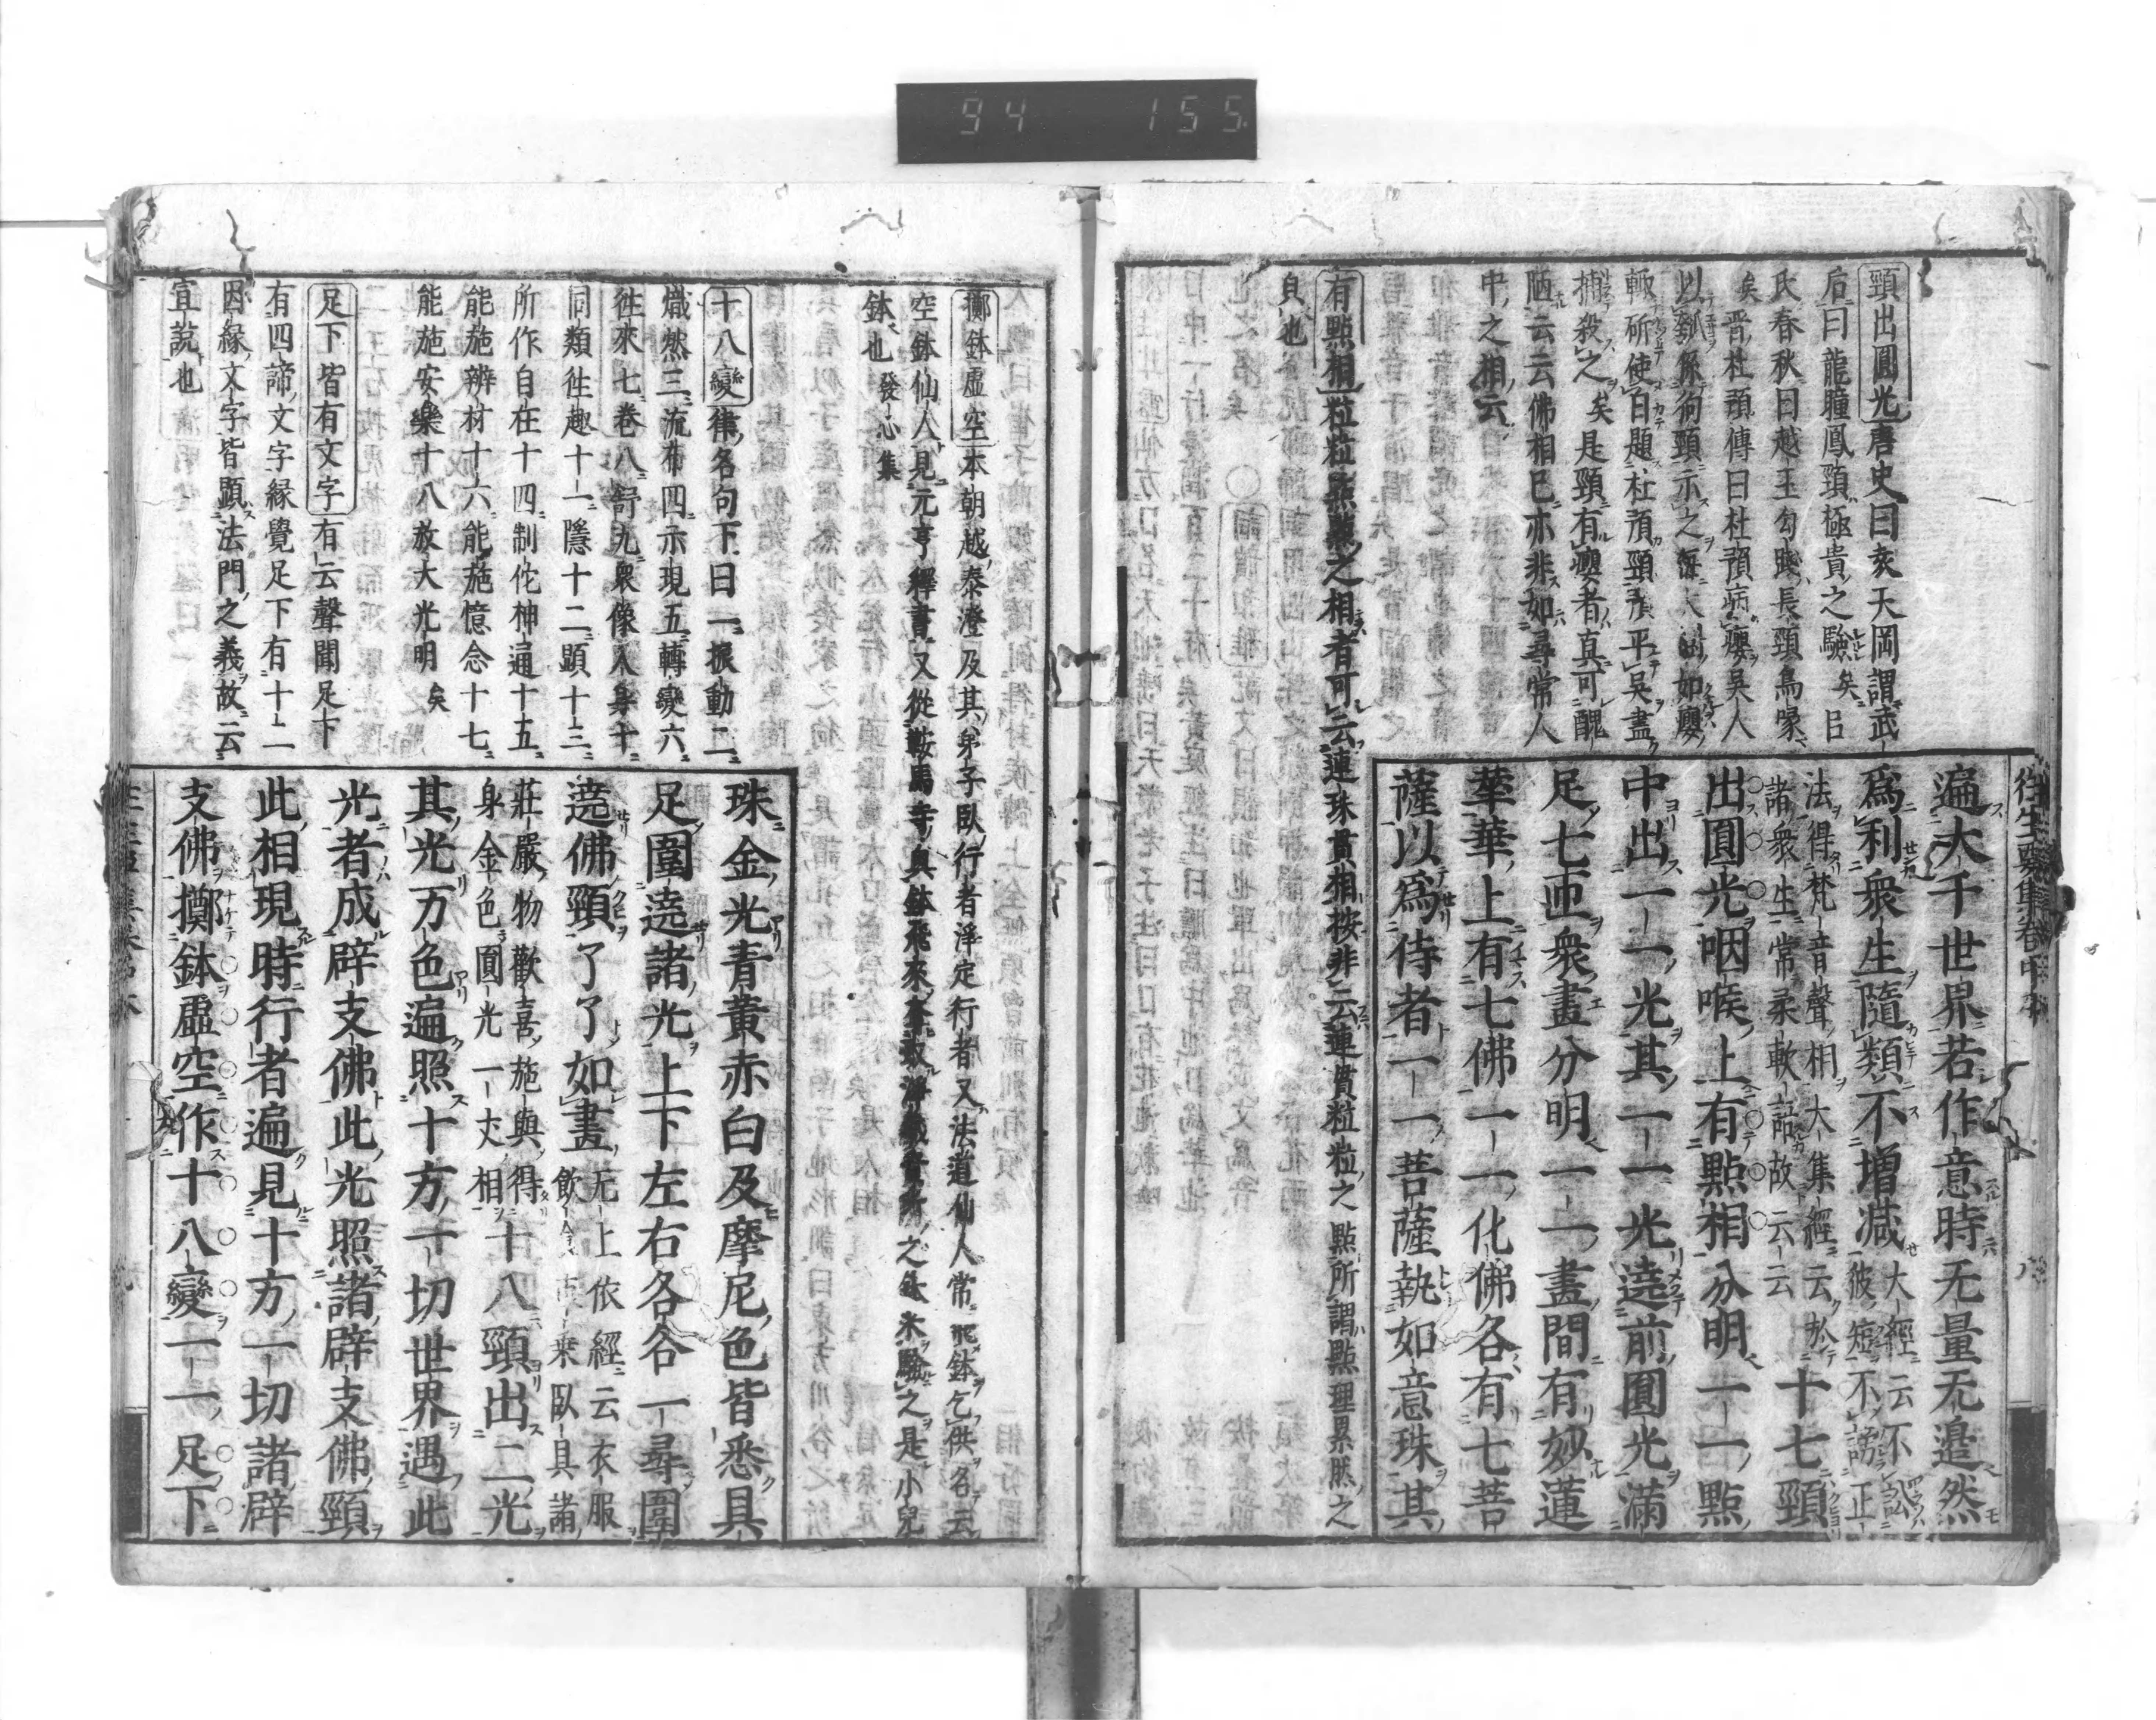 94 155
頸出圓光唐史曰袁天岡謂武
后曰龍瞳鳳頸極貴之驗矣呂
氏春秋曰越王勾踐長頸鳥喙
矣晋杜預傳曰杜預病癭吳人
以瓠系狗頸示之每大樹如癭
輙斫使白題杜預頸預平吳盡
捕殺之矣是頸有癭者真可醜
陋云云佛相已亦非如尋常人
中之相云
有點相粒粒點點之相者可云連珠貫相按非云連貫粒粒之點所謂點理累然之
貝也
往生要集卷中本 八
遍大千世界若作意時无量无邊然
爲利衆生隨類不增減大經云不
彼短不謗正
法得梵音聲相大集經云於
諸衆生常柔軟語故云云
十七頸
出圓光咽喉上有點相分明一一點
中出一一光其一一光遶前圓光滿
足七匝衆畫分明一一畫間有妙蓮
華華上有七佛一一化佛各有七菩
薩以爲侍者一一菩薩執如意珠其
擲鉢虛空本朝越泰澄及其弟子臥行者淨定行者又法道仙人常飛鉢乞供名云
空鉢仙人見元亨釋書又從鞍馬寺
之是小兒
鉢也發心集
十八變律名句下曰一振動二
熾然三流布四示現五轉變六
往來七卷八舒九衆像入身十
同類往趣十一隱十二顯十三
所作自在十四制佗神通十五
能施辨材十六能施憶念十七
能施安樂十八放大光明矣
足下皆有文字有云聲聞足下
有四諦文字緣覺足下有十二
因緣文字皆顯法門之義故云
宣說也
珠金光青黃赤白及摩尼色皆悉具
足圍遶諸光上下左右各各一尋圍
遶佛頸了了如畫无上依經云衣服
飲食 乗臥具諸
莊嚴物歡喜施與得
身金色圓光一丈相
十八頸出二光
其光万色遍照十方一切世界遇此
光者成辟支佛此光照諸辟支佛頸
此相現時行者遍見十方一切諸辟
支佛擲鉢虛空作十八變一一足下